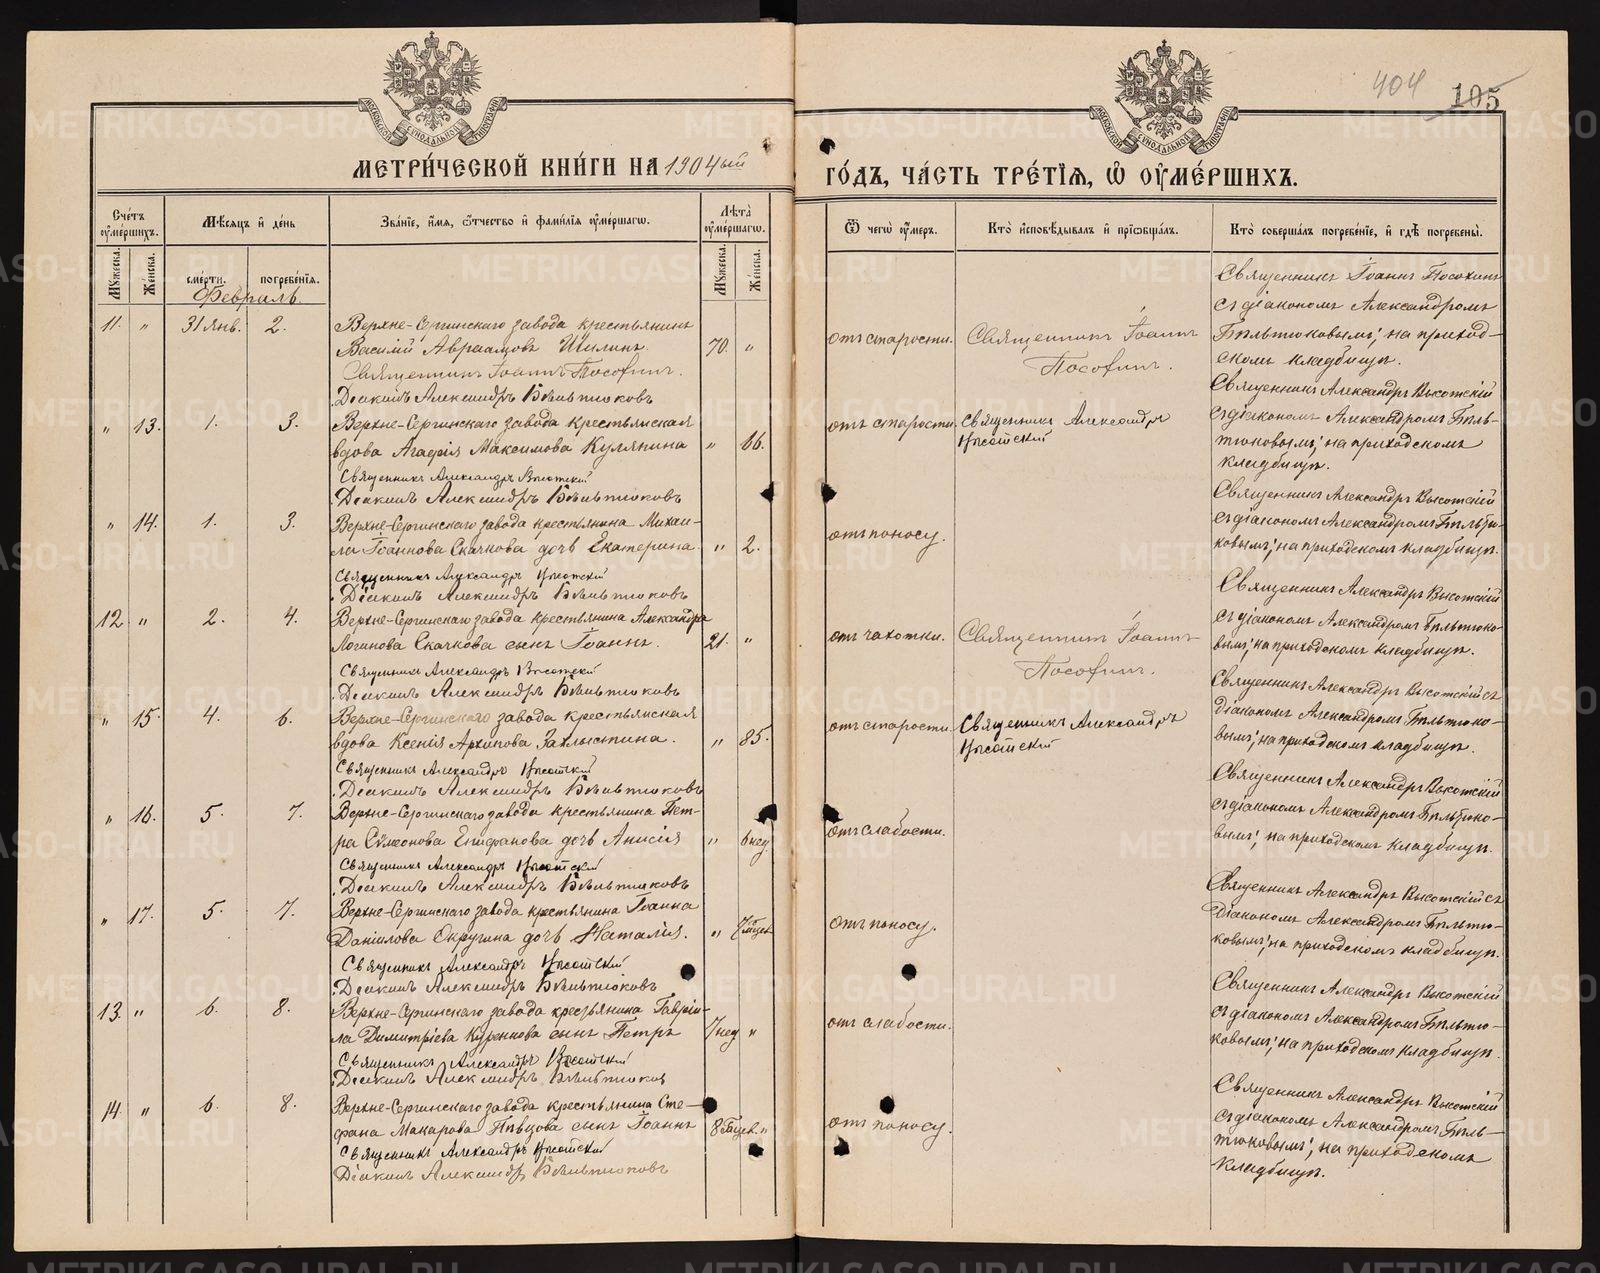 404 105
МЕТРИ́ЧЕСКОЙ КНИ́ГИ НА 1904ый
ГО́ДЪ, ЧА́СТЬ ТРЕ́ТІѦ, Ѡ ОУМЕ́РШИХЪ.
Сче́тъ оумє́ршихъ.
Мꙋ́жеска.
Же́нска.
Мѣ́сѧцъ и҆ де́нь
сме́рти.
погребе́нїѧ.
Зва́нїе, и҆́мѧ, ѻ҆́тчество и҆ фами́лїѧ оумє́ршагѡ.
Лѣ́та оумє́ршагѡ.
Мꙋ́жеска.
Же́нска.
Ѿ чегѡ̀ оу҆́меръ.
Кто̀ и҆сповѣ́дывалъ и҆ прїѡбща́лъ.
Кто̀ соверша́лъ погребе́нїе, и҆ гдѣ̀ погребены̀.
Февраль
11. " 31 Янв. 2.
Верхне-Сергинскаго завода крестьянинъ
Василій Авраамовъ Шилинъ 70. "
Священникъ Іоаннъ Пососhинъ.
Діаконъ Александръ Бѣльтюковъ
отъ старости.
Священникъ Іоаннъ
Священникъ Іоаннъ
съ діакономъ Александромъ
Бѣльтюковымъ; на приход-
скомъ кладбищѣ.
" 13. 1. 3.
Верхне-Сергинскаго завода крестьянская
вдова Агафія Максимова Кулянина " 66.
Священникъ Александръ Высотскій
Діаконъ Александръ Бѣльтюковъ
отъ старости.
Священникъ Александръ
Высотскій
Священникъ Александръ Высотскій
съ діакономъ Александромъ Бѣль-
тюковымъ; на приходскомъ
кладбищѣ.
" 14. 1. 3.
Верхне-Сергинскаго завода крестьянина Михаи-
ла Іоаннова Скачкова дочь Екатерина. " 2.
Священникъ Александръ Высотскій
Діаконъ Александръ Бѣльтюковъ
отъ поносу.
Священникъ Александръ Высотскій
съ діакономъ Александромъ Бѣльтю-
ковымъ; на приходскомъ кладбищѣ.
12 " 2. 4.
Верхне-Сергинскаго завода крестьянина Александра
Логинова Скачкова сынъ Іоаннъ. 21. "
Священникъ Александръ Высотскій
Діаконъ Александръ Бѣльтюковъ
отъ чахотки.
Священникъ Іоаннъ
Священникъ Александръ Высотскій
съ діакономъ Александромъ Бѣльтюко-
вымъ; на приходскомъ кладбищѣ.
" 15. 4. 6.
Верхне-Сергинскаго завода крестьянская
вдова Ксенія Архипова Захлыстина. " 85.
Священникъ Александръ Высотскій
Діаконъ Александръ Бѣльтюковъ
отъ старости.
Священникъ Александръ
Высотскій
Священникъ Александръ Высотскій съ
діакономъ Александромъ Бѣльтюко-
вымъ; на приходскомъ кладбищѣ.
" 16. 5. 7.
Верхне-Сергинскаго завода крестьянина Пет-
ра Сѵмеонова Епифанова дочь Анисія " 6 нед
Священникъ Александръ Высотскій
Діаконъ Александръ Бѣльтюковъ
отъ слабости.
Священникъ Александръ Высотскій
съ діакономъ Александромъ Бѣльтюко-
вымъ; на приходскомъ кладбищѣ.
" 17. 5. 7.
Верхне-Сергинскаго завода крестьянина Іоанна
Даніилова Округина дочь Наталія. " 7 мѣсяц
Священникъ Александръ Высотскій
Діаконъ Александръ Бѣльтюковъ
отъ поносу.
Священникъ Александръ Высотскій съ
діакономъ Александромъ Бѣльтю-
ковымъ; на приходскомъ кладбищѣ.
13. " 6. 8.
Верхне-Сергинскаго завода крестьянина Гавріи-
ла Димитріева Куренкова сынъ Петръ 7 нед "
Священникъ Александръ Высотскій
Діаконъ Александръ Бѣльтюковъ
отъ слабости.
Священникъ Александръ Высотскій
съ діакономъ Александромъ Бѣльтю-
ковымъ; на приходскомъ кладбищѣ.
14. " 6. 8.
Верхне-Сергинскаго завода крестьянина Сте-
фана Макарова Пѣвцова сынъ Іоаннъ 8 мѣсяц. "
Священникъ Александръ Высотскій
Діаконъ Александръ Бѣльтюковъ
отъ поносу.
Священникъ Александръ Высотскій
съ діакономъ Александромъ Бѣль-
тюковымъ; на приходскомъ
кладбищѣ.
METRIKI.GASO-URAL.RU